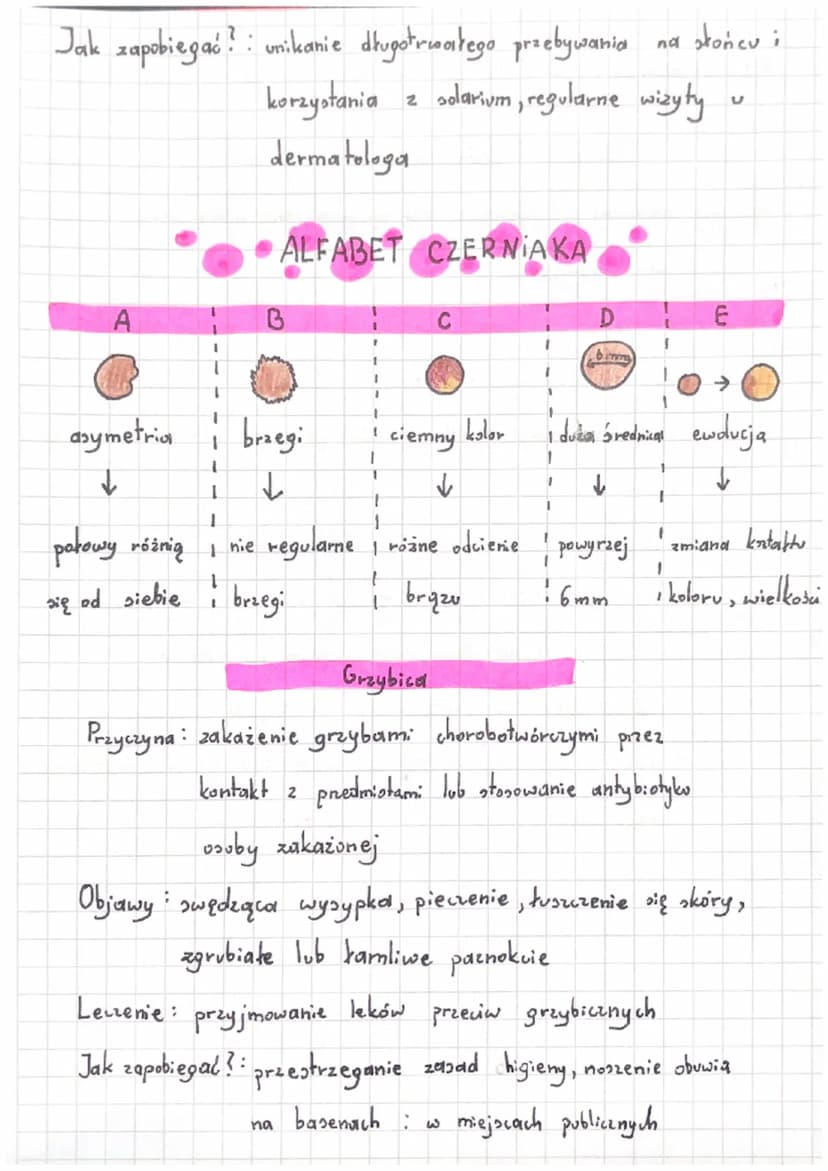 Jak zapobiegać?: unikanie długotrwałego przebywania na słońcu i
korzystania z solarium, regularne wizyty u
dermatologa
ALFABET CZERNIAKA
A B C D E
6 mm
asymetria brzegi ciemny kolor duża średnica ewolucja
połowy różnią nie regularne różne odcienie powyrzej zmiana kształtu
się od siebie brzegi brązu 6 mm koloru, wielkości
Grzybica
Przyczyna: zakażenie grzybami chorobotwórczymi przez
kontakt z przedmiotami lub stosowanie antybiotyku
osoby zakażonej
Objawy: swędząca wysypka, pieczenie, łuszczenie się skóry,
zgrubiałe lub łamliwe paznokcie
Leczenie: przyjmowanie leków przeciw grzybicznych
Jak zapobiegać?: przestrzeganie zasad higieny, noszenie obuwia
na basenach i w miejscach publicznych